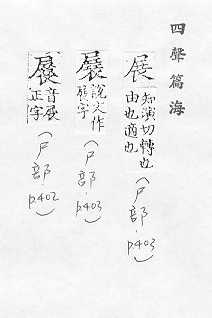 四聲篇海
展
知演切轉也
由也適也
(尸部 p403)
展
說文作
字
(尸部 p403)
音展
正字
(尸部 p402)